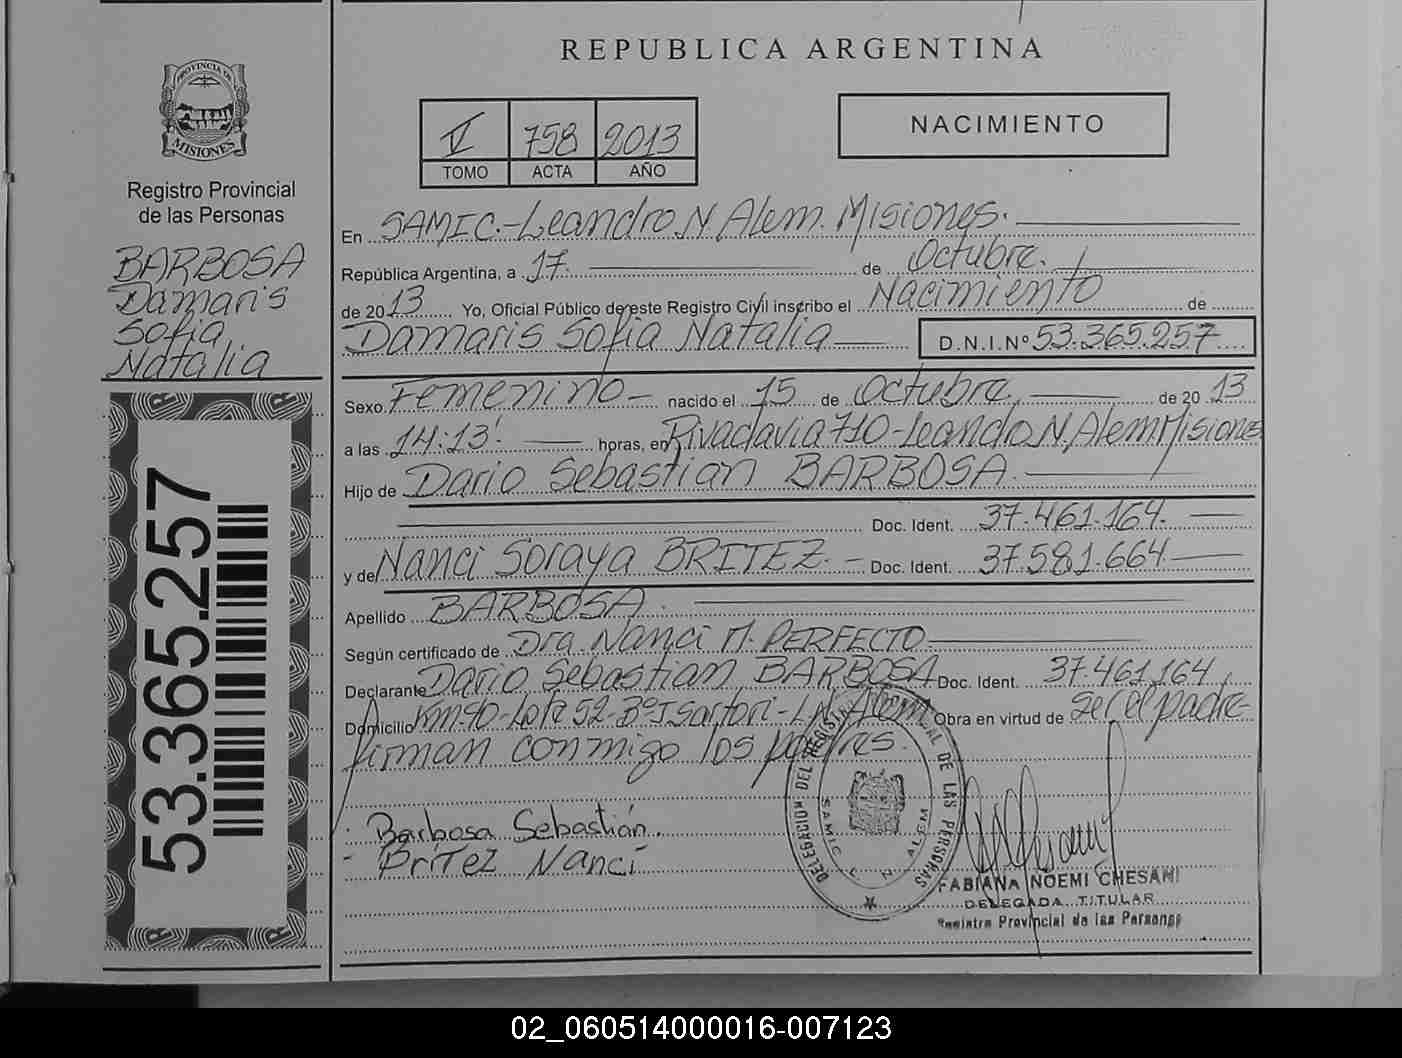 REPUBLICA ARGENTINA
PROVINCIA DE
MISIONES
Registro Provincial
de las Personas
BARBOSA
Damaris
Sofia
Natalia
53.365.257
V 758 2013
TOMO ACTA AÑO
NACIMIENTO
En SAMIC.-Leandro N Alem. Misiones.
República Argentina, a 17. de Octubre.
de 2013 Yo, Oficial Público de este Registro Civil inscribo el Nacimiento de
Damaris Sofia Natalia D.N.I.Nº 53.365.257
Sexo Femenino- nacido el 15 de Octubre. de 2013
a las 14:13'. horas, en Rivadavia 710-Leandro N. Alem Misiones
Hijo de Dario Sebastian BARBOSA.
Doc. Ident. 37.461.164.
y de Nanci Soraya BRITEZ. - Doc. Ident. 37.581.664
Apellido BARBOSA.
Según certificado de Dra. Nanci M. PERFECTO
Declarante Dario Sebastian BARBOSA Doc. Ident. 37.461.164
Domicilio Km 90-Lote 52-Bº J Sartori-L.N. Alem Obra en virtud de ser el padre-
firman conmigo los padres.
Barbosa Sebastián.
- Britez Nanci
DELEGACION DEL REGISTRO PROVINCIAL DE LAS PERSONAS
SAMIC L N ALEM
FABIANA NOEMI CHESANI
DELEGADA TITULAR
Registro Provincial de las Personas
02_060514000016-007123